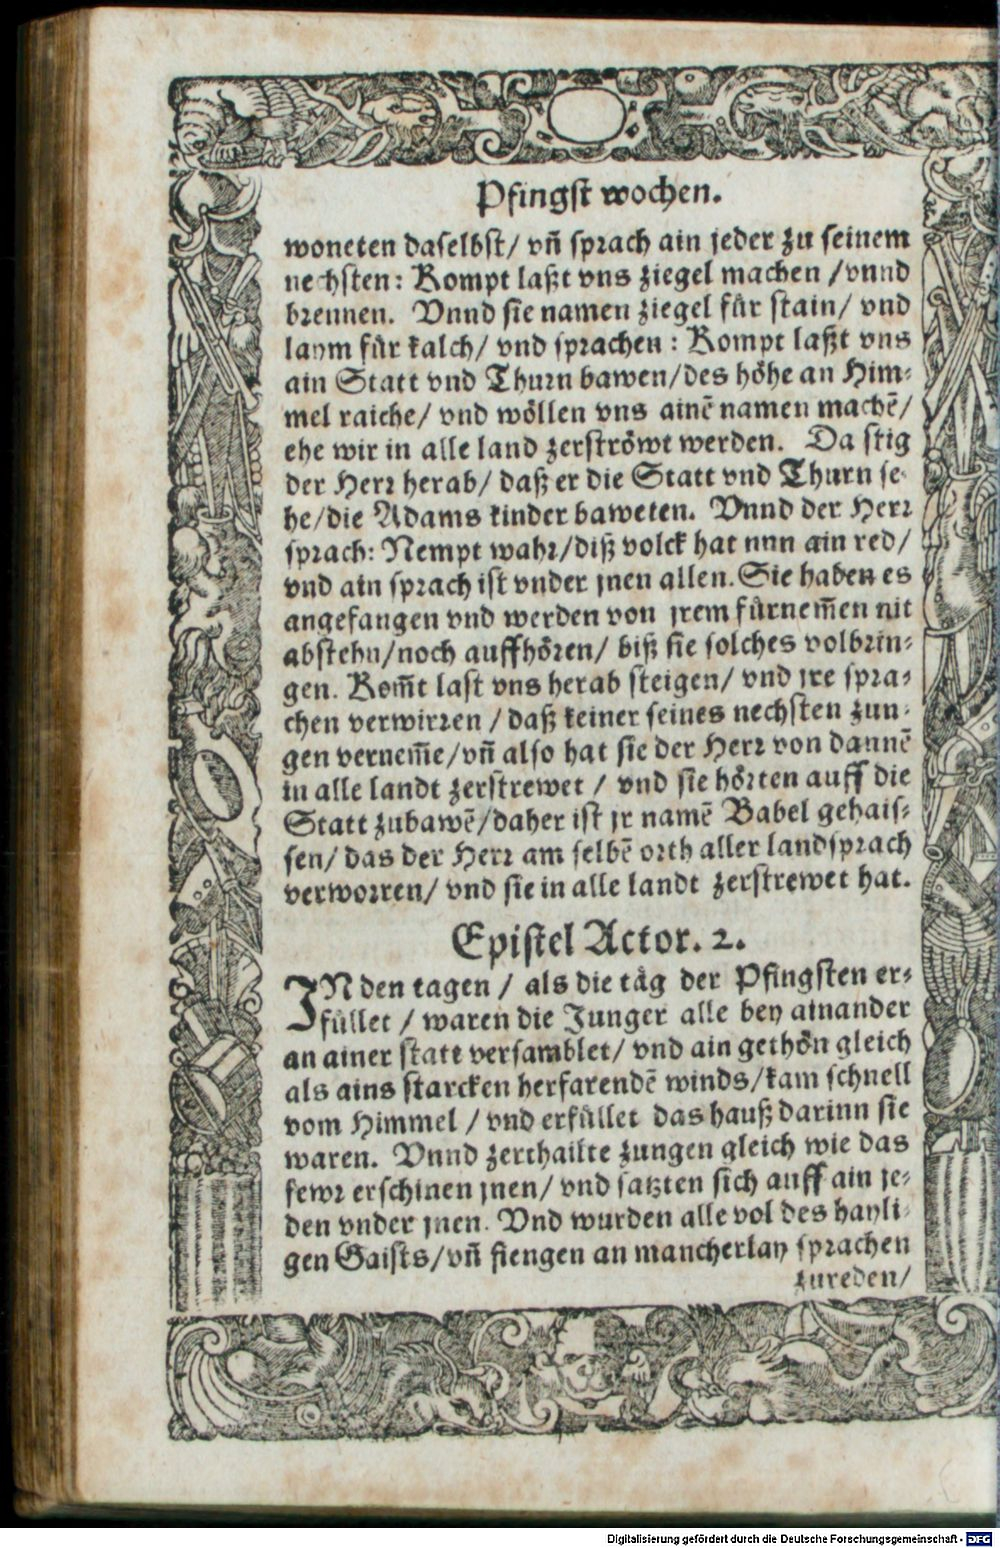 Pfingst wochen.
woneten daselbst/ vñ sprach ain jeder zu seinem
nechsten: Kompt laßt vns ziegel machen /vnnd
brennen. Vnnd sie namen ziegel fůr stain/ vnd
laym fůr kalch/ vnd sprachen: Kompt laßt vns
ain Statt vnd Thurn bawen/des hőhe an Him-
mel raiche/ vnd wőllen vns ainẽ namen machẽ/
ehe wir in alle land zerströwt werden. Da stig
der Herr herab/ daß er die Statt vnd Thurn se-
he/die Adams kinder baweten. Vnnd der Herr
sprach: Nempt wahr/diß volck hat nun ain red/
vnd ain sprach ist vnder jnen allen. Sie haben es
angefangen vnd werden von jrem fůrnem̃en nit
abstehn/noch auffhőren/ biß sie solches volbrin-
gen. Kom̃t last vns herab steigen/ vnd jre spra-
chen verwirren /daß keiner seines nechsten zun-
gen vernem̃e/vñ also hat sie der Herr von dannẽ
in alle landt zerstrewet / vnd sie hőrten auff die
Statt zubawẽ/daher ist jr namẽ Babel gehais-
sen/ das der Herr am selbẽ orth aller landsprach
verworren/ vnd sie in alle landt zerstrewet hat.
Epistel Actor. 2.
IN den tagen / als die tåg der Pfingsten er-
fůllet / waren die Junger alle bey ainander
an ainer statt versamblet/ vnd ain gethőn gleich
als ains starcken herfarendẽ winds/kam schnell
vom Himmel / vnd erfůllet das hauß darinn sie
waren. Vnnd zerthailte zungen gleich wie das
fewr erschinen jnen/ vnd satzten sich auff ain je-
den vnder jnen. Vnd wurden alle vol des hayli-
gen Gaists/vñ fiengen an mancherlay sprachen
zureden/
Digitalisierung gefördert durch die Deutsche Forschungsgemeinschaft - DFG